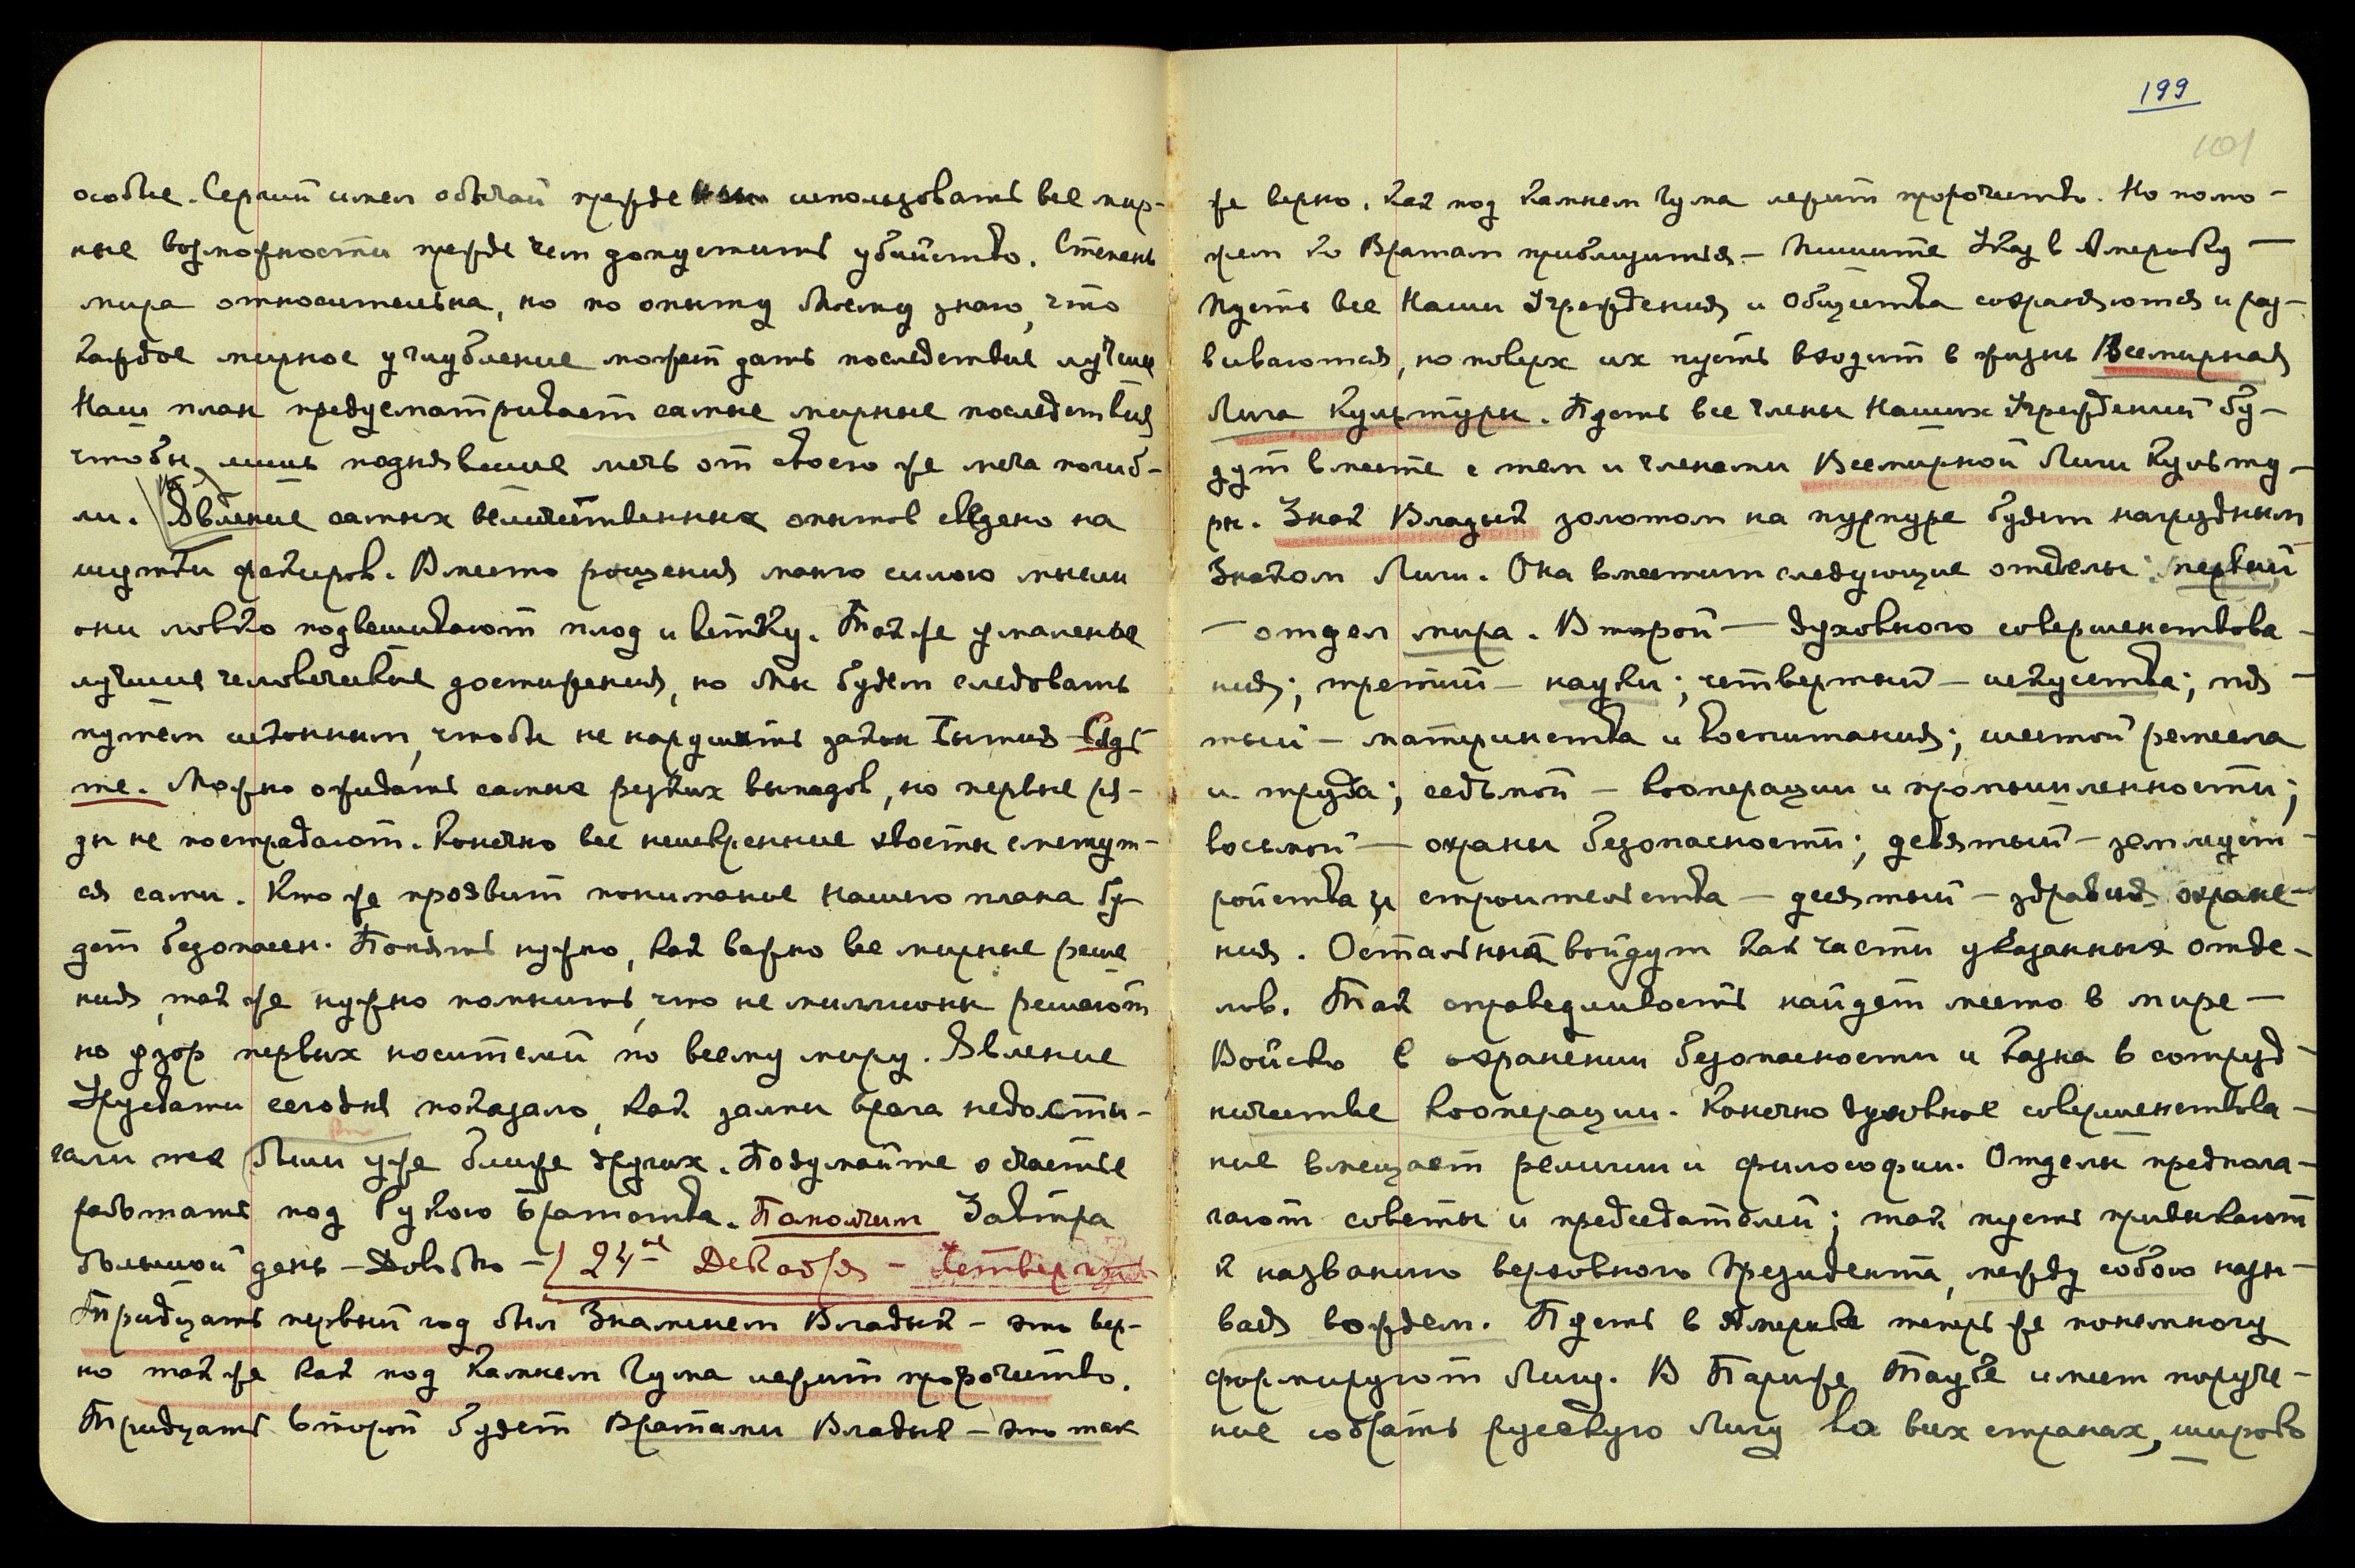 особые. Сергий имел обычай прежде использовать все мир-
ные возможности прежде чем допустить убийство. Степень
мира относительна, но по опыту Моему знаю, что
каждое мирное углубление может дать последствие лучшие
Наш план предусматривает самые мирные последствия
чтобы лишь поднявшие мечь от своего же меча погиб-
ли. Явление самых величественных опытов сведено на
шутки факиров. Вместо рощения манго силою мысли
они ловко подвешивают плод и ветку. Также умаленные
лучшие человеческие достижения, но Мы будем следовать
путем исконным, чтобы не нарушить закон Бытия - Сядь
те. Можно ожидать самые резких выпадов, но первые ря-
ды не пострадают. Конечно все неискренние хвосты сметут-
ся сами. Кто же проявит понимание Нашего плана бу-
дет безопасен. Понять нужно, как важно все мирные реше
ния, так же нужно помнить, что не миллионы решают
но дозор первых носителей по всему миру. Явление
Урусвати сегодня показало, как залпы врага недости-
гали тех были уже ближе других. Подумайте о счастье
работать под Рукою Братства. Пополчим Завтра
большой день - Довольно - / 24ое Декабря - Четверг
Тридцать первый год был Знаменем Владык - это вер-
но так же как под камнем Чума лежит пророчество.
Тридцать второй будет Вратами Владык - это так
199
101
же верно, как под камнем Чума лежит пророчество. Но помо-
жем ко Вратам приблизиться - Пишите Указ в Америку -
Пусть все Наши Учреждения и Общества сохраняются и раз-
виваются, но поверх их пусть входит в жизнь Всемирная
Лига Культуры. Пусть все члены Наших Учреждений бу-
дут вместе с тем и членами Всемирной Лиги Культу-
ры. Знак Владык золотом на пурпуре будет нагрудным
Знаком Лиги. Она вместит следующие отделы: первый
- отдел мира. Второй - духовного совершенствова-
ния; третий - науки; четвертый - искусства; пя-
тый - материнства и воспитания; шестой ремесла
и труда; седьмой - кооперации и промышленности;
восьмой - охраны безопасности; девятый - землеуст-
ройства и строительства - десятый - здравия охране-
ния. Остальные войдут как части указанных отде-
лов. Так справедливость найдет место в мире -
Войско в охранении безопасности и казна в сотруд-
ничестве кооперации. Конечно духовное совершенствова-
ние вмещает религии и философии. Отделы предпола-
гают советы и председателей; так пусть привыкают
к названию верховного Президента, между собою назы-
вая вождем. Пусть в Америке теперь же понемногу
формируют Лигу. В Париже Таубе имеет поруче-
ние собрать русскую Лигу во всех странах, широко